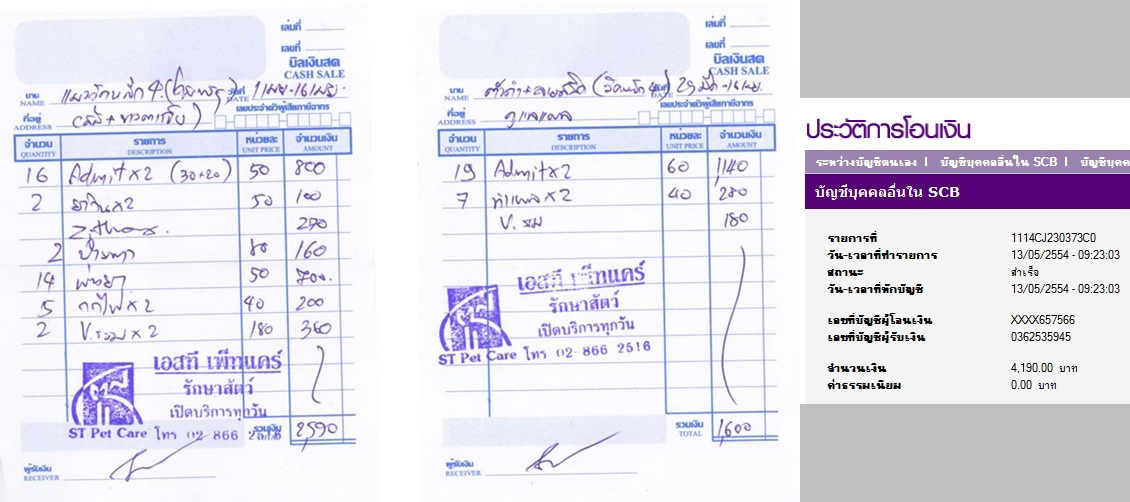 เล่มที่
เลขที่
บิลเงินสด
CASH SALE
นาม
NAME
DATE 1 เมย-16 เมย.
ที่อยู่
ADDRESS
เลขประจำตัวผู้เสียภาษีอากร
จำนวน รายการ หน่วยละ จำนวนเงิน
QUANTITY DESCRIPTION UNIT PRICE AMOUNT
16 Admit x2 (30+20) 50 800
2 x2 50 100
270
2 ป้ายตา 80 160
14 พ่นยา 50 700.
5 กกไฟ x2 40 200
2 V.รวม x2 180 360
เอสที เพ็ทแคร์
รักษาสัตว์
เปิดบริการทุกวัน
ST Pet Care โทร 02 866 2516
รวมเงิน
TOTAL 2,590
ผู้รับเงิน
RECEIVER
เล่มที่
เลขที่
บิลเงินสด
CASH SALE
นาม
NAME
DATE 29 มีค-16 เมย.
ที่อยู่
ADDRESS ดูแลแผล
เลขประจำตัวผู้เสียภาษีอากร
จำนวน รายการ หน่วยละ จำนวนเงิน
QUANTITY DESCRIPTION UNIT PRICE AMOUNT
19 Admit x2 60 1,140
7 ทำแผล x2 40 280
V. รวม 180
เอสที เพ็ทแคร์
รักษาสัตว์
เปิดบริการทุกวัน
ST Pet Care โทร 02 866 2516
รวมเงิน
TOTAL 1,600
ผู้รับเงิน
RECEIVER
ประวัติการโอนเงิน
ระหว่างบัญชีตนเอง | บัญชีบุคคลอื่นใน SCB | บัญชีบุคค
บัญชีบุคคลอื่นใน SCB
รายการที่ 1114CJ230373C0
วัน-เวลาที่ทำรายการ 13/05/2554 - 09:23:03
สถานะ สำเร็จ
วัน-เวลาที่หักบัญชี 13/05/2554 - 09:23:03
เลขที่บัญชีผู้โอนเงิน XXXX657566
เลขที่บัญชีผู้รับเงิน 0362535945
จำนวนเงิน 4,190.00 บาท
ค่าธรรมเนียม 0.00 บาท